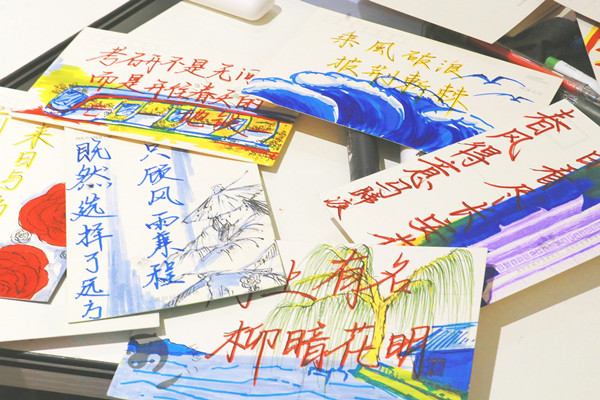 考研不是无
而是开往春天的
乘風破浪
披荆斩棘
春风得意马蹄疾
日看尽长安
来日与
既然选择了远方
只顾风雨兼程
上有名
柳暗花明